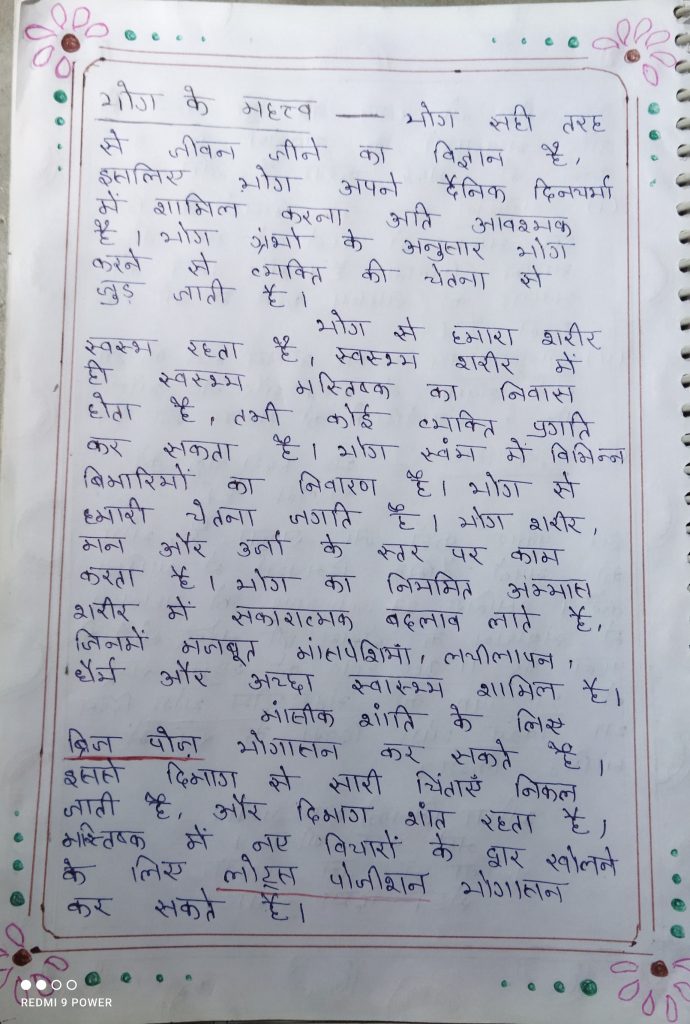 योग के महत्व — योग सही तरह
से जीवन जीने का विज्ञान है,
इसलिए योग अपने दैनिक दिनचर्या
में शामिल करना अति आवश्यक
है। योग ग्रंथो के अनुसार योग
करने से व्यक्ति की चेतना से
जुड़ जाती है।
योग से हमारा शरीर
स्वस्थ रहता है, स्वस्थ्य शरीर में
ही स्वस्थ्य मस्तिष्क का निवास
होता है, तभी कोई व्यक्ति प्रगति
कर सकता है। योग स्वंम में विभिन्न
बिमारियों का निवारण है। योग से
हमारी चेतना जगति है। योग शरीर,
मन और उर्जा के स्तर पर काम
करता है। योग का नियमित अभ्यास
शरीर में सकारात्मक बदलाव लाते है,
जिनमें मजबूत मांसपेशियां, लचीलापन,
धैर्य और अच्छा स्वास्थ्य शामिल है।
मांसीक शांति के लिए
ब्रिज पोज़ योगासन कर सकते है।
इससे दिमाग से सारी चिंताएँ निकल
जाती है, और दिमाग शांत रहता है।
मस्तिष्क में नए विचारों के द्वार खोलने
के लिए लोट्स पोजीशन योगासन
कर सकते है।
REDMI 9 POWER